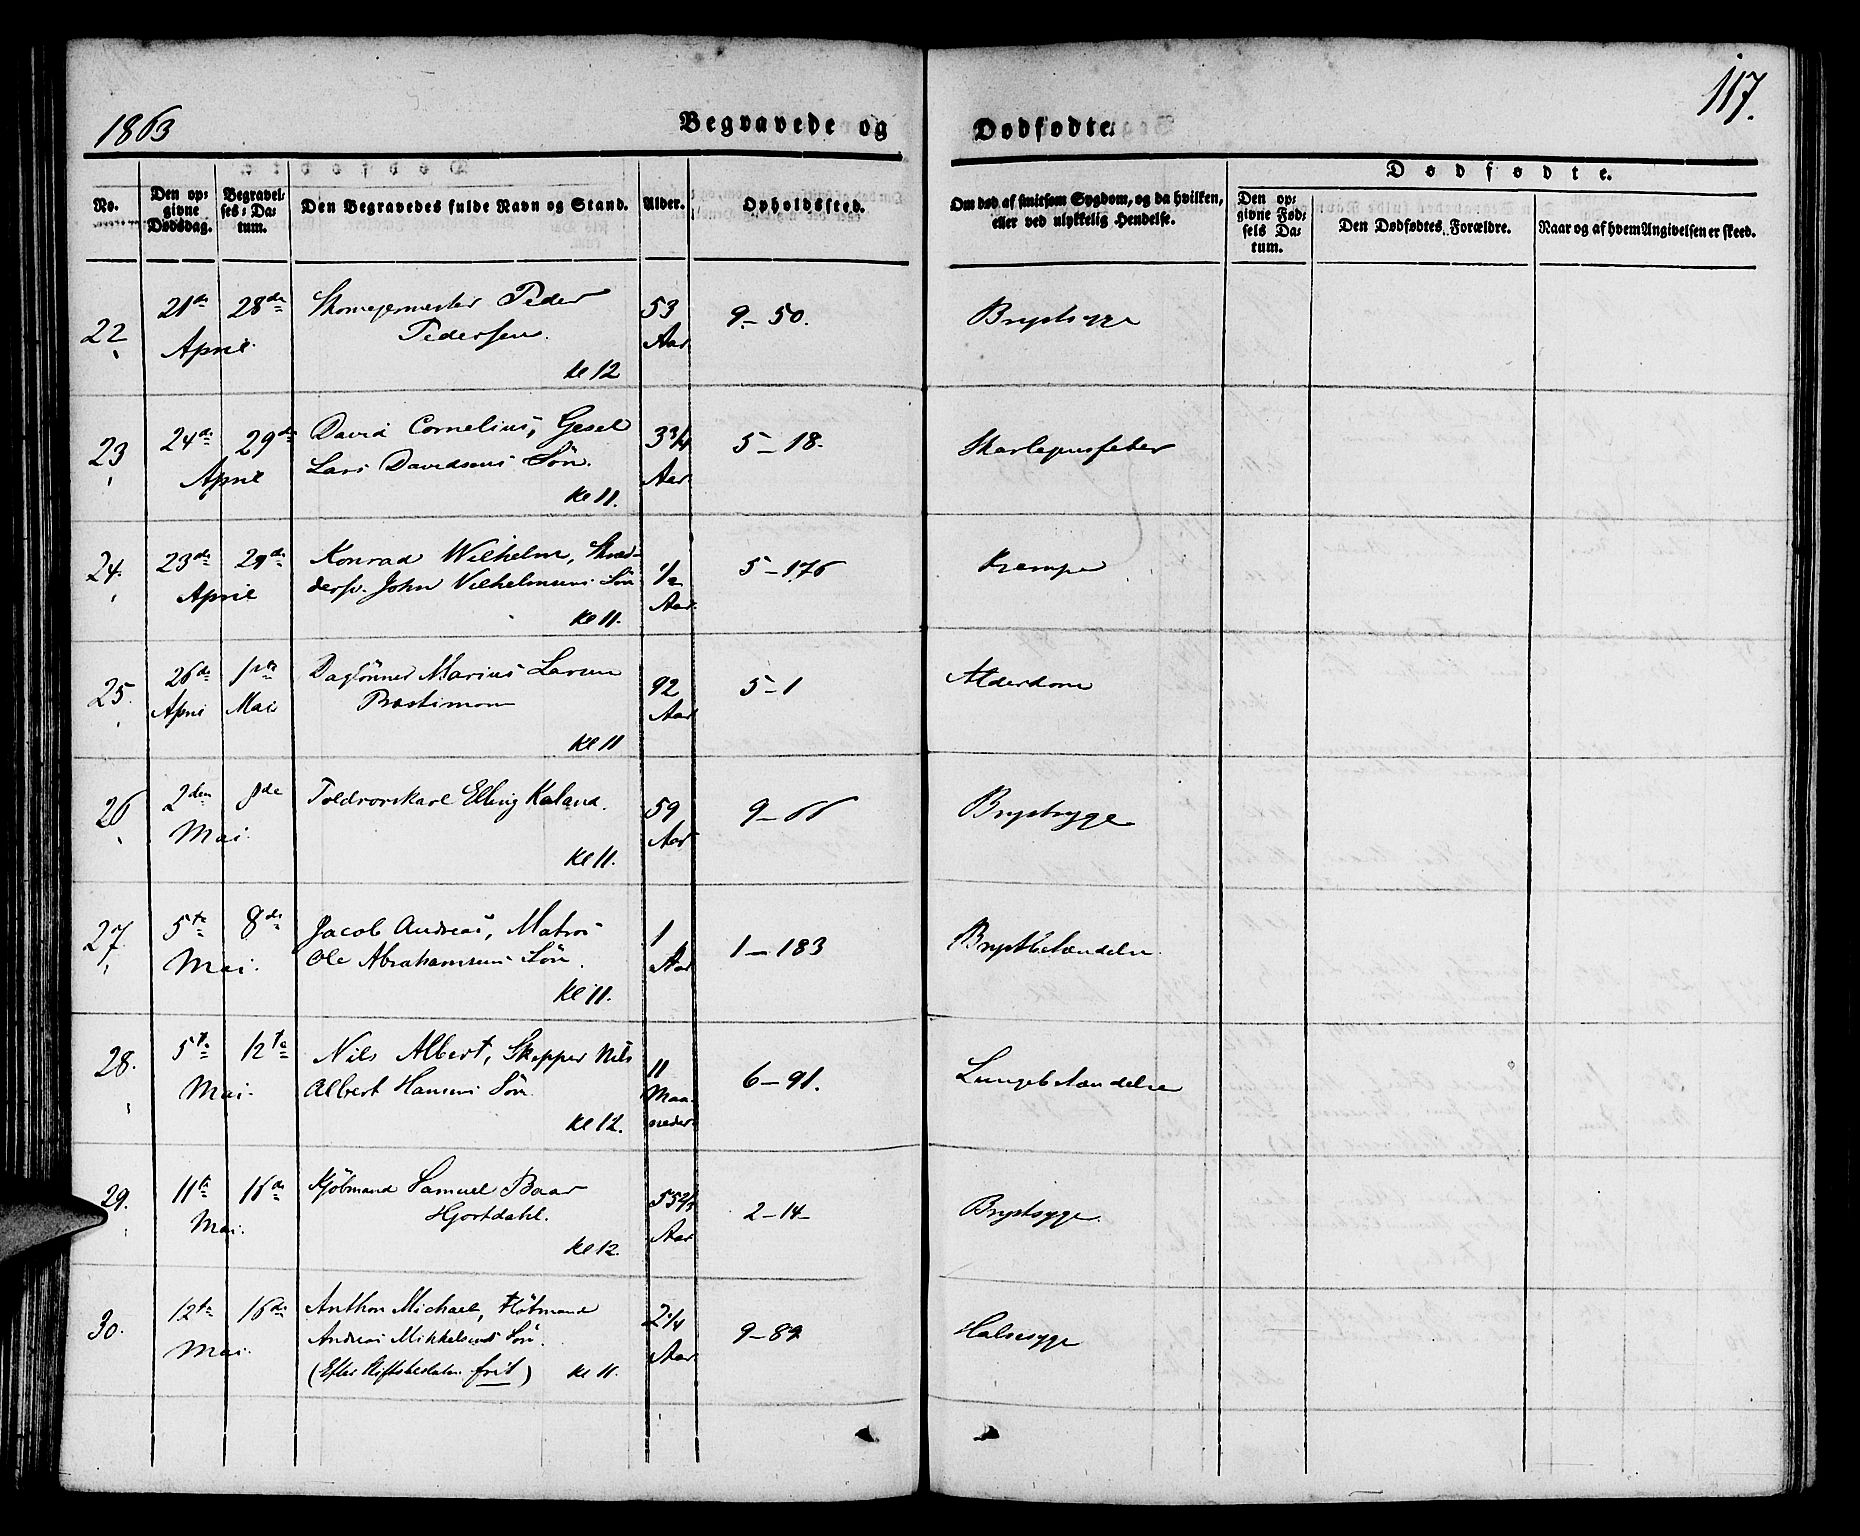 1863
Begravede og Dødfødte.
117.
No.
Den opgivne Dødsdag.
Begravelses-Datum.
Den Begravedes fulde Navn og Stand.
Alder.
Opholdssted.
Om død af smitsom Sygdom, og da hvilken, eller ved ulykkelig Hendelse.
Dødfødte.
Den opgivne Fødsels Datum.
Den Dødfødtes Forældre.
Naar og af hvem Angivelsen er skeed.
22 21de 28de Skomagermester Peder 53 9-50. Brystsyge
April Pedersen. Aar
Kl 12
23 24de 29de David Cornelius, Gesel 3 3/4 5-18. Skarlagensfeber
April Lars Davidsens Søn. Aar
Kl 11.
24. 23de 29de Konrad Wilhelm, Skræd- 1/2 5-176 Krampe
April dersv. John Vilhelmsens Søn Aar
Kl 11.
25. 26de 1ste Daglönner Marius Larsen 92 5-1 Alderdom
April Mai Aar
Kl 11
26 2den 8de Toldrorskarl Elling Kaland. 59 9-66 Brystsyge
Mai. Aar
Kl 11.
27. 5te 8de Jacob Andreas, Matros 1 1-183 Brystbetændelse.
Mai. Ole Abrahamsens Søn. Aar
Kl 11.
28. 5te 12te Nils Albert, Skipper Nils 11 6-91. Lungebetændelse
Mai. Albert Hansens Søn. Maa-
Kl 12. neder
29. 11te 16de Kjöbmand Samuel Baar 55 2-14- Brystsyge.
Mai. Hjortdahl. Aar
Kl 12.
30. 12te 16de Anthon Michael, Kjöbmand 2 1/4 9-89 Halssyge
Mai. Andreas Mikkelsens Søn. Aar
(Efter frit) Kl 11.